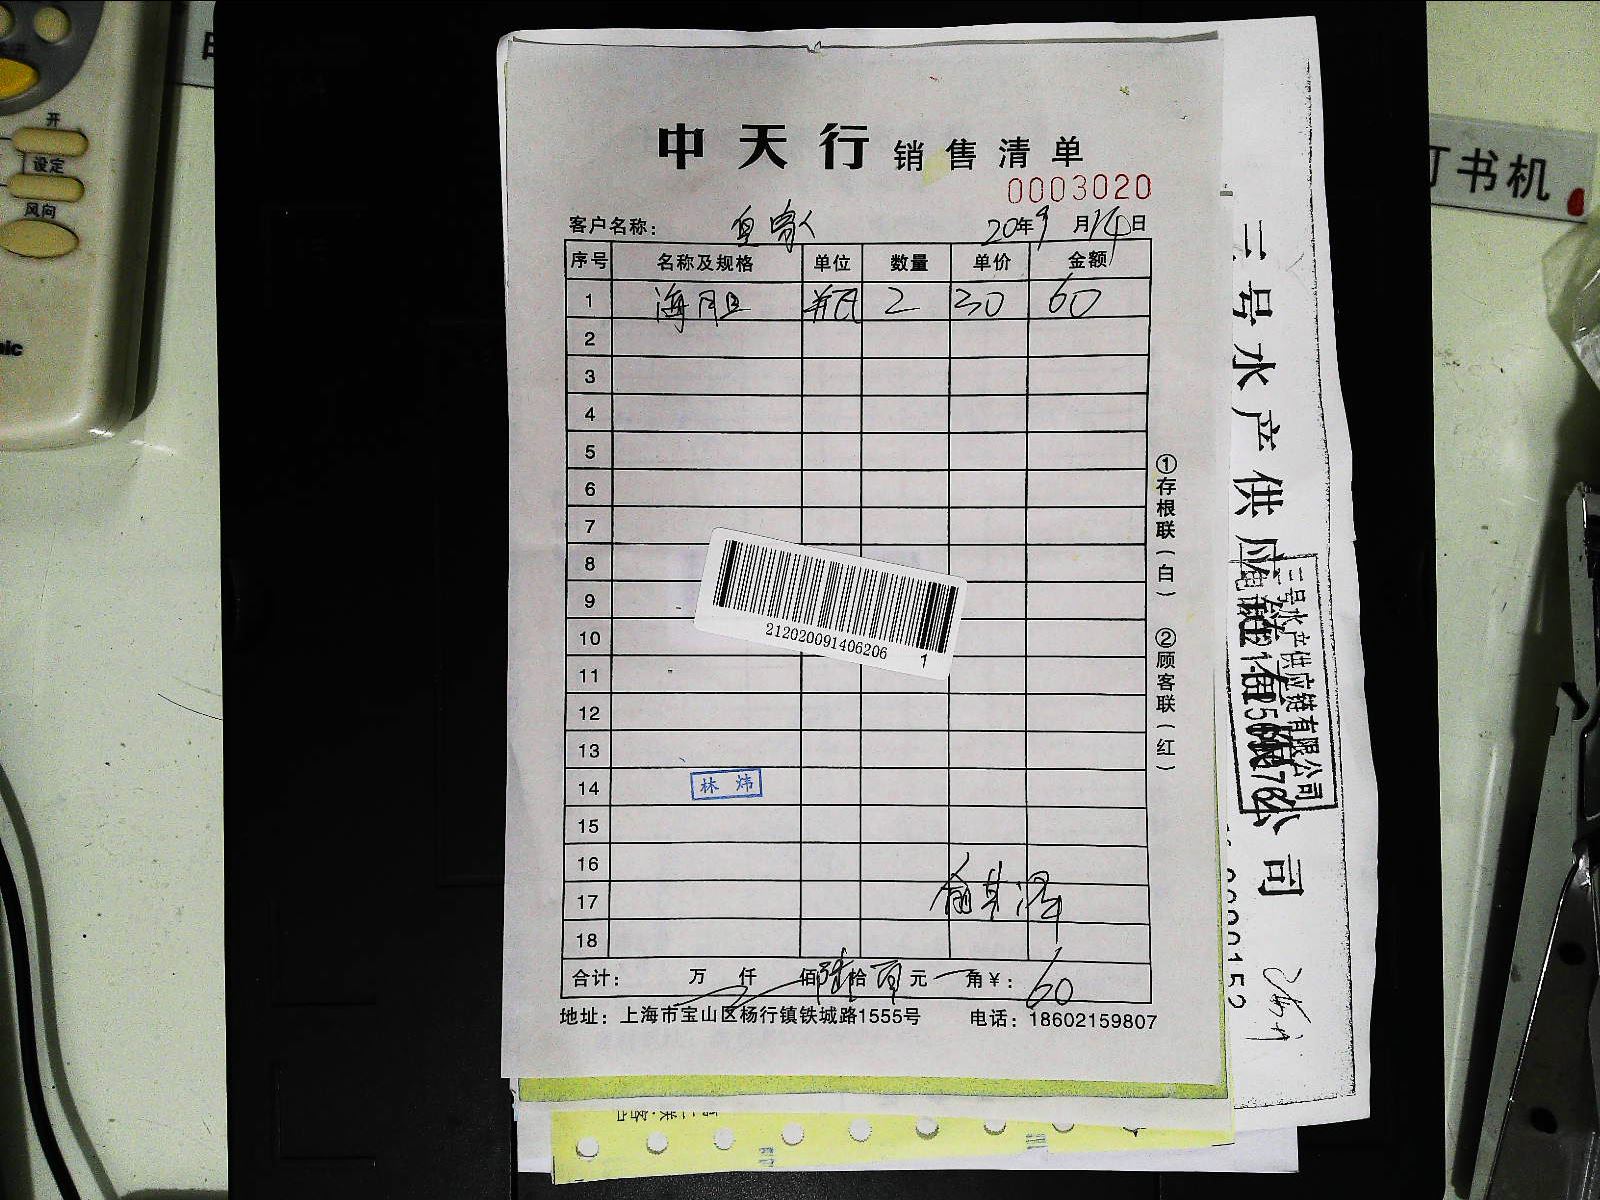 中天行 销售清单
0003020
客户名称： 20年9月14日
序号 名称及规格 单位 数量 单价 金额
1 海胆 瓶 2 30 60
2
3
4
5
6
7
8
9
10
11
12
13
14 林炜
15
16
17
18
212020091406206 1
合计： 万 仟 佰 陆 拾 元 角 ￥：60
地址：上海市宝山区杨行镇铁城路1555号 电话：18602159807
①存根联（白） ②顾客联（红）
三号水产供应链有限公司
三号水产供应链有限公司
开
设定
风向
订书机